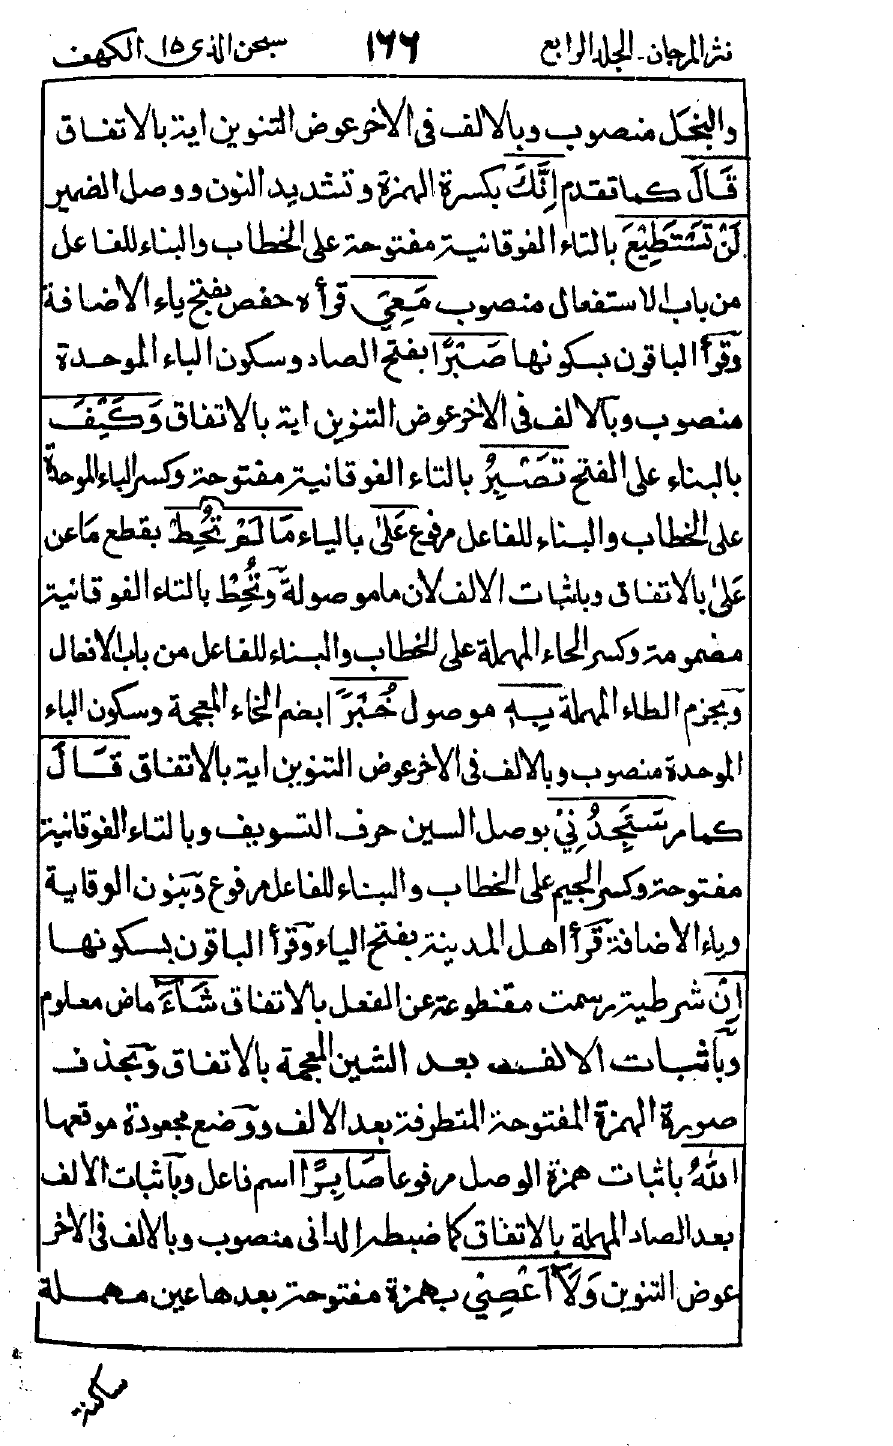 نثر المرجان - الجلد الرابع ١٦٦ سبحن الذى ١٥ الكهف
والبخل منصوب وبالالف فى الاخر عوض التنوين اية بالاتفاق
قَالَ كما تقدم اِنَّكَ بكسرة الهمزة وتشديد النون ووصل الضمير
لَنْ تَسْتَطِيْعَ بالتاء الفوقانية مفتوحة على الخطاب والبناء للفاعل
من باب الاستفعال منصوب مَعِىَ قرأه حفص بفتح ياء الاضافة
وقرأ الباقون بسكونها صَبْرًا بفتح الصاد وسكون الباء الموحدة
منصوب وبالالف فى الاخر عوض التنوين اية بالاتفاق وَكَيْفَ
بالبناء على الفتح تَصْبِرُ بالتاء الفوقانية مفتوحة وكسر الباء الموحدة
على الخطاب والبناء للفاعل مرفوع عَلٰى بالياء مَا لَمْ تُحِطْ بقطع ما عن
على بالاتفاق وباثبات الالف لان ما موصولة وتُحِطْ بالتاء الفوقانية
مضمومة وكسر الحاء المهملة على الخطاب والبناء للفاعل من باب الافعال
وبجزم الطاء المهملة بِهٖ موصول خُبْرًا بضم الخاء المعجمة وسكون الباء
الموحدة منصوب وبالالف فى الاخر عوض التنوين اية بالاتفاق قَالَ
كما مر سَتَجِدُنِىْ بوصل السين حرف التسويف وبالتاء الفوقانية
مفتوحة وكسر الجيم على الخطاب والبناء للفاعل مرفوع وبنون الوقاية
وياء الاضافة قرأ اهل المدينة بفتح الياء وقرأ الباقون بسكونها
اِنْ شرطية رسمت مقطوعة عن الفعل بالاتفاق شَآءَ ماض معلوم
وباثبات الالف بعد الشين المعجمة بالاتفاق وبحذف
صورة الهمزة المفتوحة المتطرفة بعد الالف ووضع مجعودة موقعها
اللّٰهُ باثبات همزة الوصل مرفوعا صَابِرًا اسم فاعل وباثبات الالف
بعد الصاد المهملة بالاتفاق كما ضبطه الدانى منصوب وبالالف فى الاخر
عوض التنوين وَلَآ اَعْصِىْ بهمزة مفتوحة بعدها عين مهملة
ساكنة